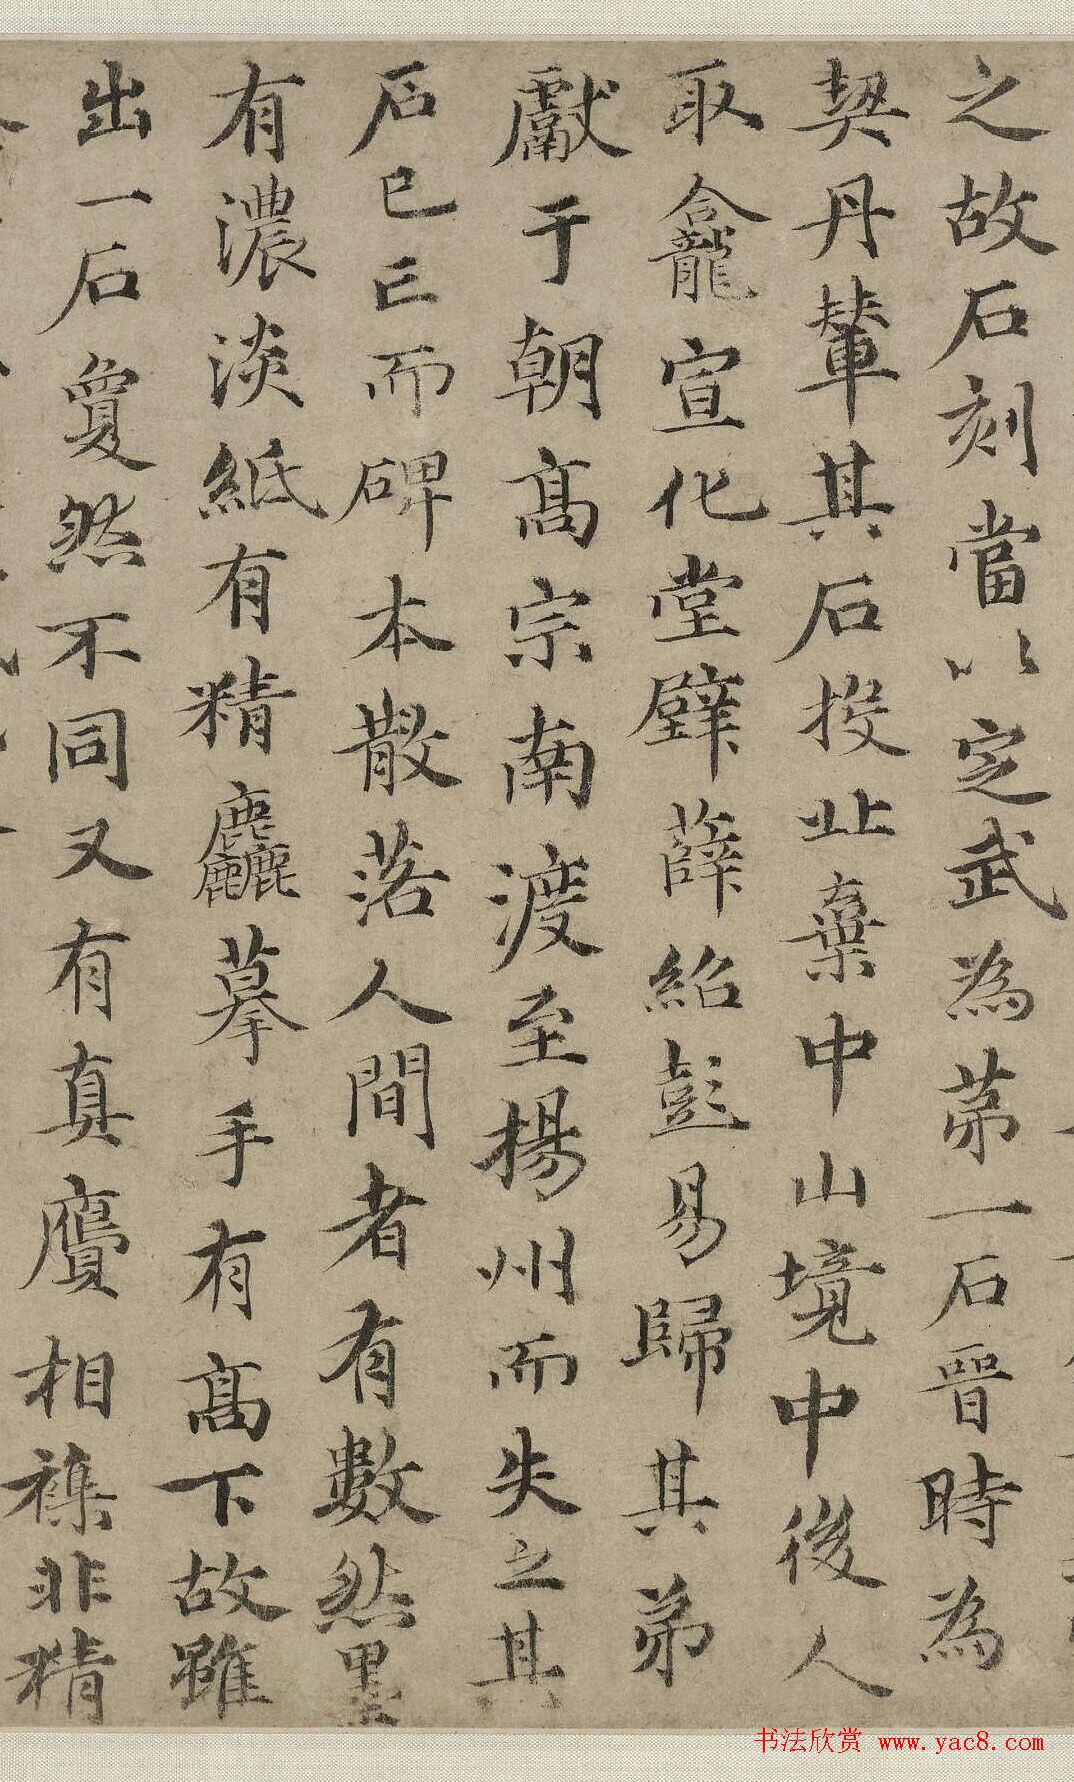 之故石刻當以定武為苐一石晉時為
契丹輦其石投此棄中山境中後人
取龕宣化堂壁薛紹彭易歸其弟
獻于朝高宗南渡至揚州而失之其
石已亡而碑本散落人間者有數然墨
有濃淡紙有精麤摹手有高下故雖
出一石敻然不同又有真贗相襍非精
书法欣赏 www.yac8.com